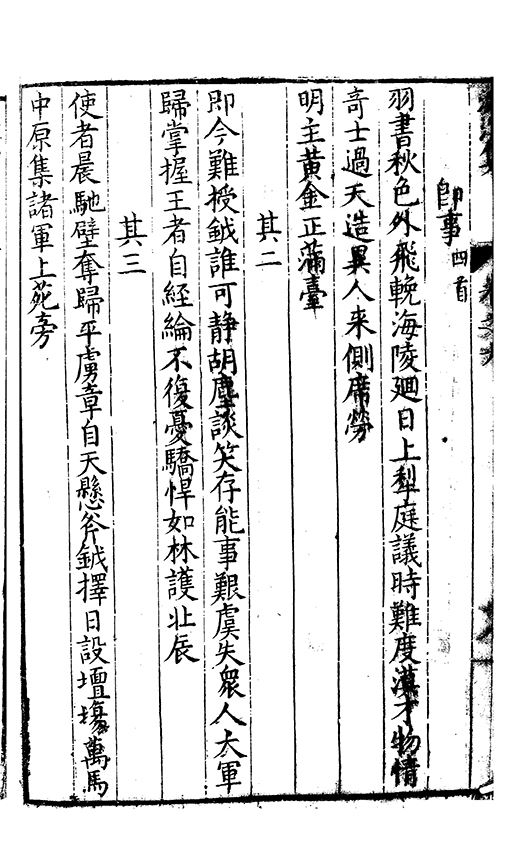 即事四首
羽書秋色外飛輓海陵廻日上犁庭議時難度漠才物情
奇士過天造異人來側席勞
明主黃金正滿臺
其二
即今難授鉞誰可靜胡塵談笑存能事艱虞失眾人大軍
歸掌握王者自經綸不復憂驕悍如林護北辰
其三
使者晨馳壁奪歸平虜章自天懸斧鉞擇日設壇場萬馬
中原集諸軍上苑旁